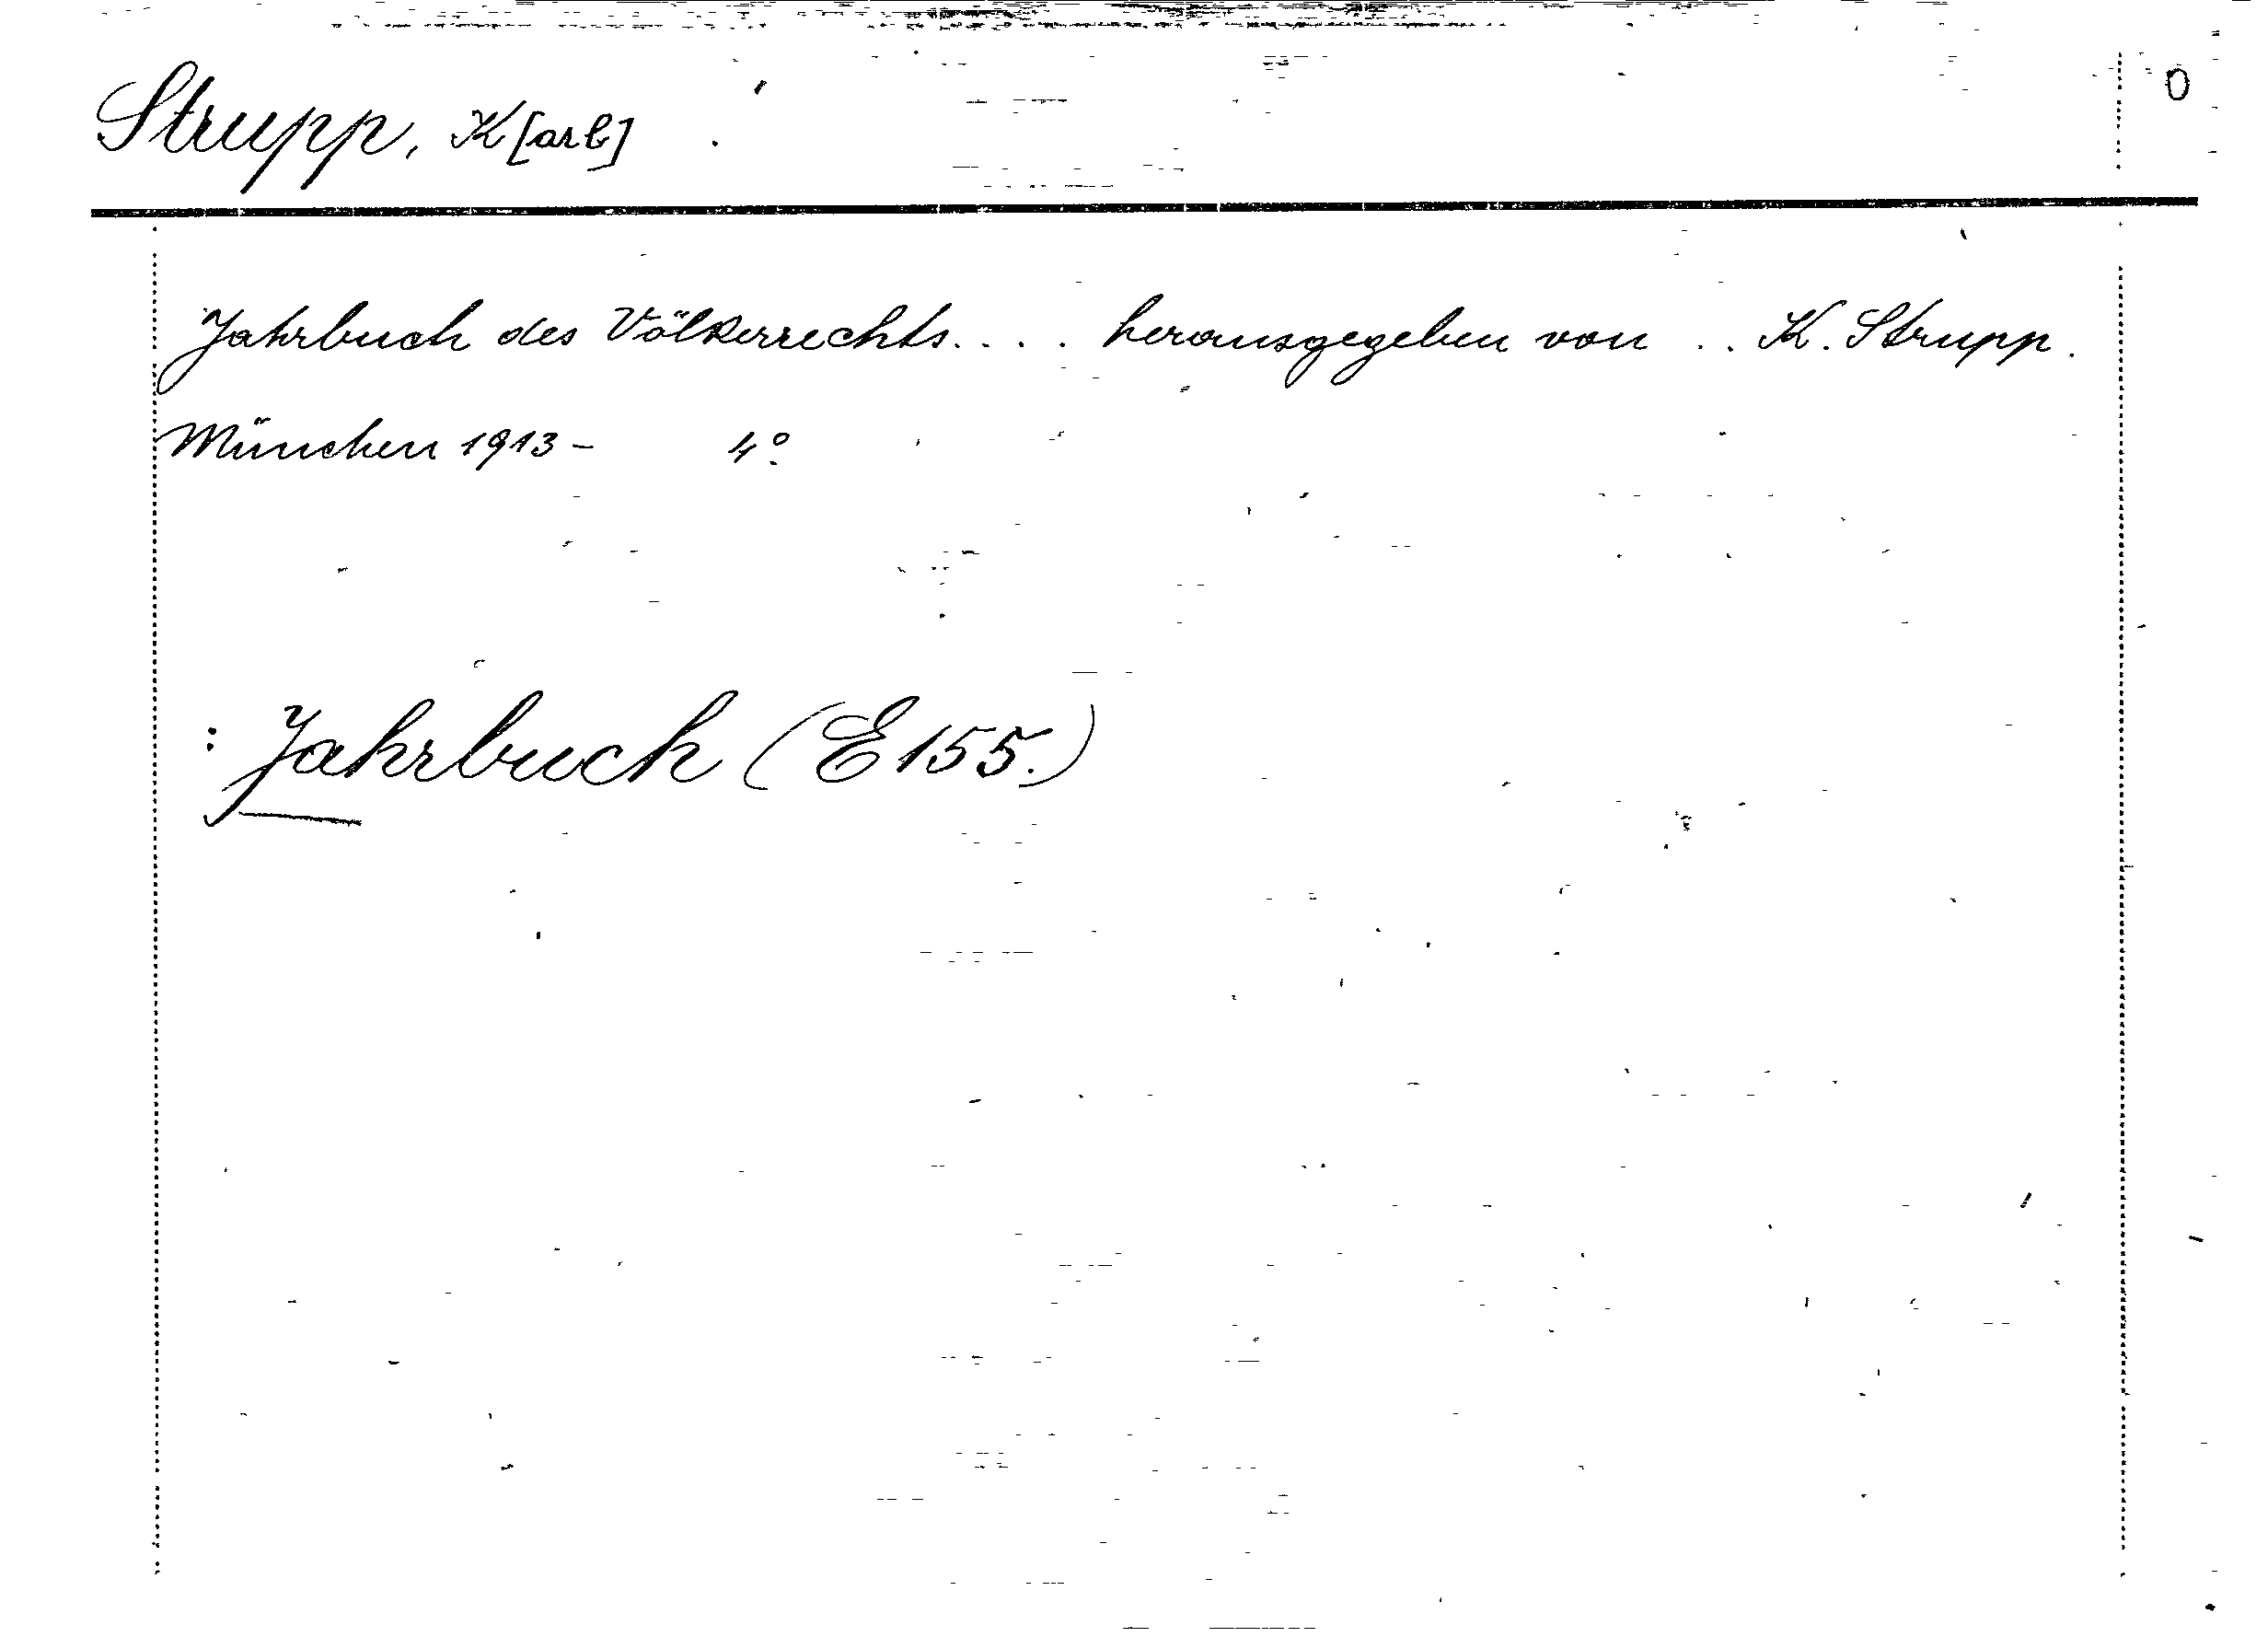 Strupp, K[arl] 0
Jahrbuch des Völkerrechts.... herausgegeben von .. K. Strupp.
München 1913- 4º.
: Jahrbuch (E 155.)